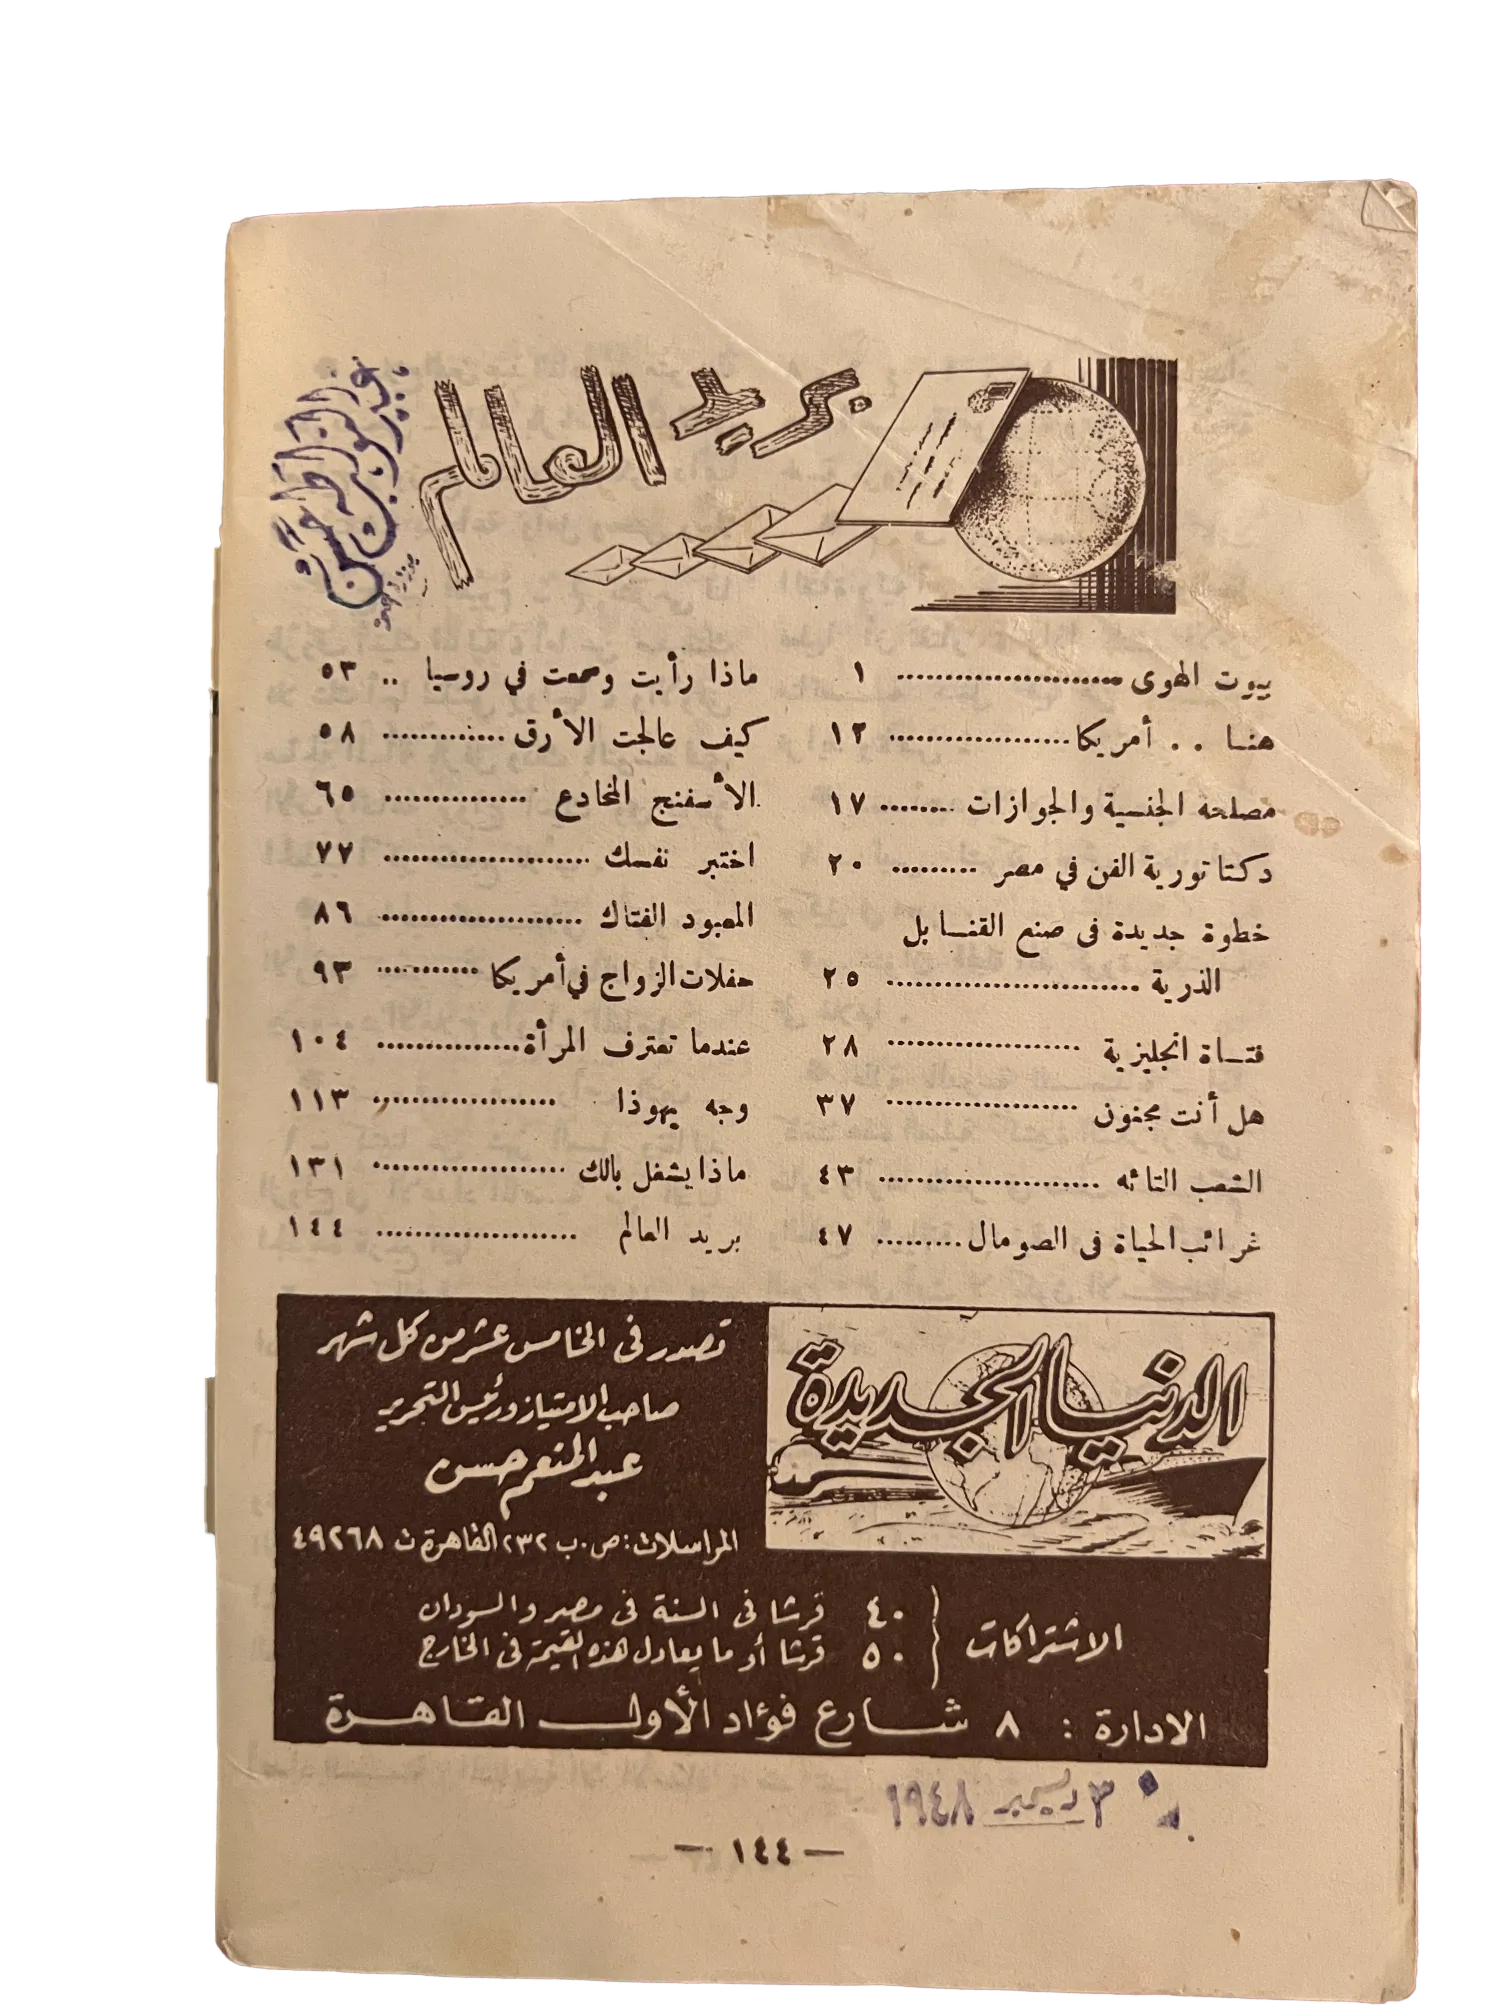 بريد العالم
بيوت الهوى ........................ ١
هنا . . أمريكا ................... ١٢
مصلحة الجنسية والجوازات ........ ١٧
دكتاتورية الفن في مصر ......... ٢٠
خطوة جديدة في صنع القنابل
الذرية .......................... ٢٥
فتاة انجليزية .................... ٢٨
هل أنت مجنون .................... ٣٧
الشعب التائه ....................... ٤٣
غرائب الحياة في الصومال ......... ٤٧
ماذا رأيت وسمعت في روسيا .. ٥٣
كيف عالجت الأرق ............. ٥٨
الأسفنج المخادع ............... ٦٥
اختبر نفسك ...................... ٧٧
المعبود الفتاك ..................... ٨٦
حفلات الزواج في أمريكا ........... ٩٣
عندما تعترف المرأة ............... ١٠٤
وجه يهوذا ................... ١١٣
ماذا يشغل بالك .................... ١٣١
بريد العالم ..................... ١٤٤
الدنيا الجديدة
تصدر في الخامس عشر من كل شهر
صاحب الامتياز ورئيس التحرير
عبد المنعم حسن
المراسلات : ص . ب ٢٣٢ القاهرة ت ٤٩٢٦٨
الاشتراكات
٤٠ قرشا في السنة في مصر والسودان
٥٠ قرشا أو ما يعادل هذه القيمة في الخارج
الادارة : ٨ شارع فؤاد الأول القاهرة
٣ ديسمبر ١٩٤٨
— ١٤٤ —